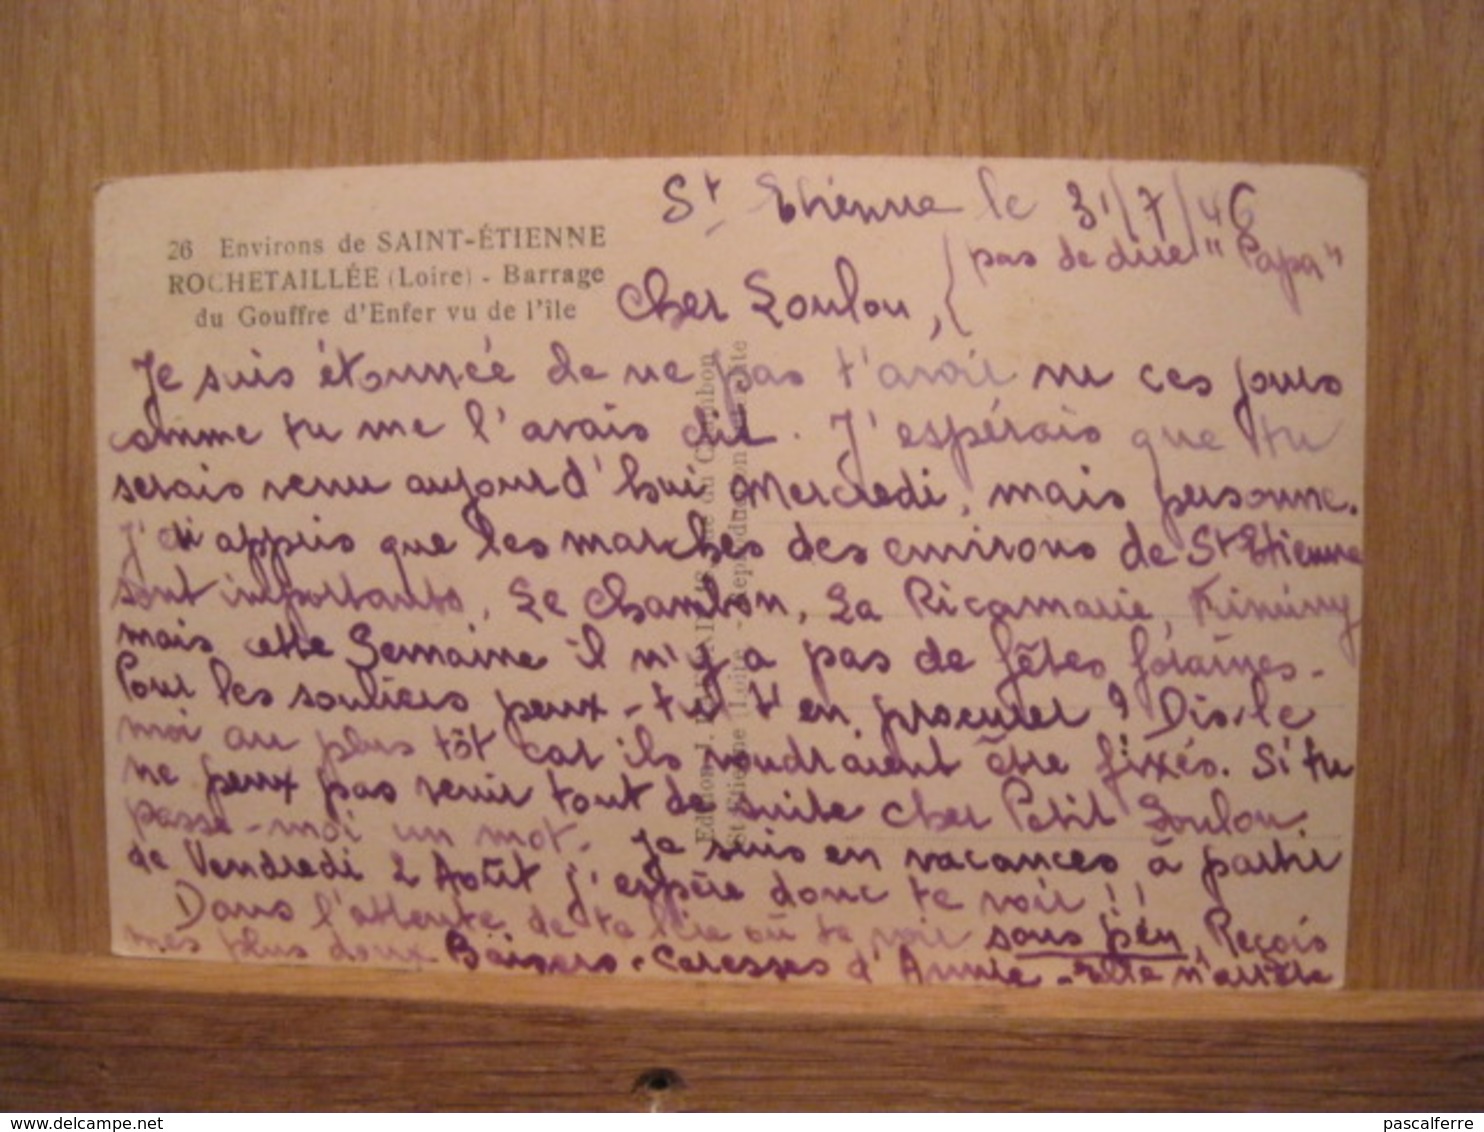 St Etienne le 31/7/46
26 Environs de SAINT-ÉTIENNE
ROCHETAILLÉE (Loire) - Barrage
du Gouffre d'Enfer vu de l'île
Cher Loulou, { pas de dire "Papa"
Je suis étonnée de ne pas t'avoir vu ces jours
comme tu me l'avais dit. J'espérais que tu
serais venu aujourd'hui Mercredi, mais personne.
J'ai appris que les marches des environs de St Etienne
sont importants, Le Chambon, La Ricamarie, Firminy
mais cette Semaine il n'y a pas de fêtes foraines.
Pour les souliers peux-tu t'en procurer ? Dis-le
moi au plus tôt car ils voudraient être fixés. Si tu
ne peux pas venir tout de suite cher Petit Loulou
passe-moi un mot. Je suis en vacances à partir
de Vendredi 2 Août j'espère donc te voir !!
Dans l'attente de te lire ou te voir sous peu, Reçois
mes plus doux Baisers. Caresses d'Annie - Elle n'arrête
Edition J. rue du Chambon
St-Etienne (Loire) - Reproduction interdite
Delcampe.net
pascalferre